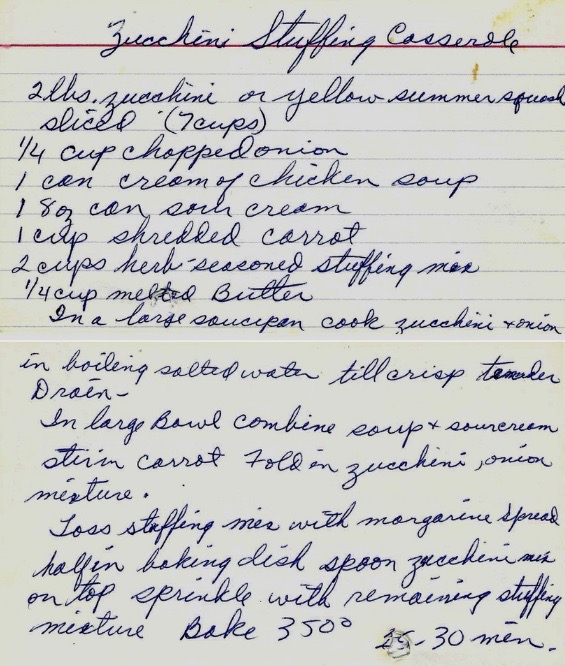 Zucchini Stuffing Casserole
2 lbs. zucchini or yellow summer squash
sliced (7 cups)
1/4 cup chopped onion
1 can cream of chicken soup
1 8oz can sour cream
1 cup shredded carrot
2 cups herb-seasoned stuffing mix
1/4 cup melted Butter
In a large saucepan cook zucchini + onion
in boiling salted water till crisp tender
Drain-
In large Bowl combine soup + sourcream
stir in carrot Fold in zucchini, onion
mixture.
Toss stuffing mix with margarine spread
half in baking dish spoon zucchini mix
on top sprinkle with remaining stuffing
mixture Bake 350°
25-30 min.